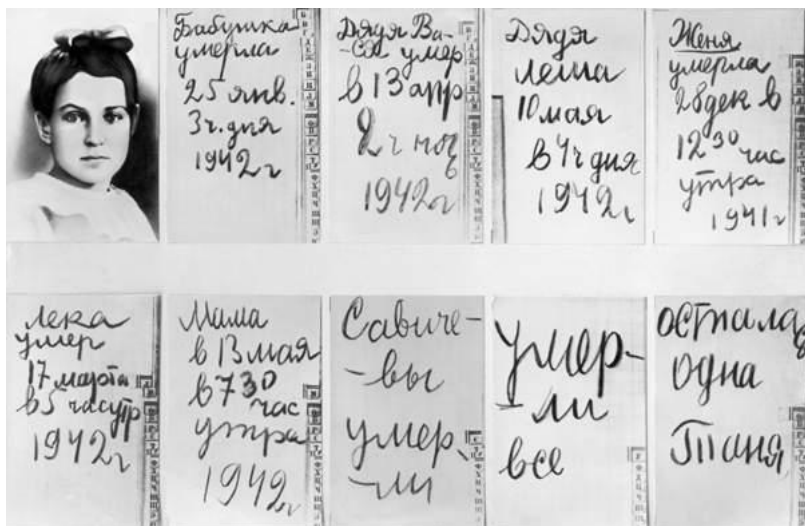 Бабушка
умерла
25 янв.
3 ч. дня
1942 г
Дядя Ва-
-ся умер
в 13 апр
2 ч ноч
1942 г
Дядя
Леша
10 мая
в 4 ч дня
1942 г
Женя
умерла
28 дек в
12 30 час
утра
1941 г
Лека
умер
17 марта
в 5 час утр
1942 г
Мама
в 13 мая
в 7 30
час
утра
1942 г
Савиче-
-вы
умер-
-ли
умер-
-ли
все
осталась
одна
Таня